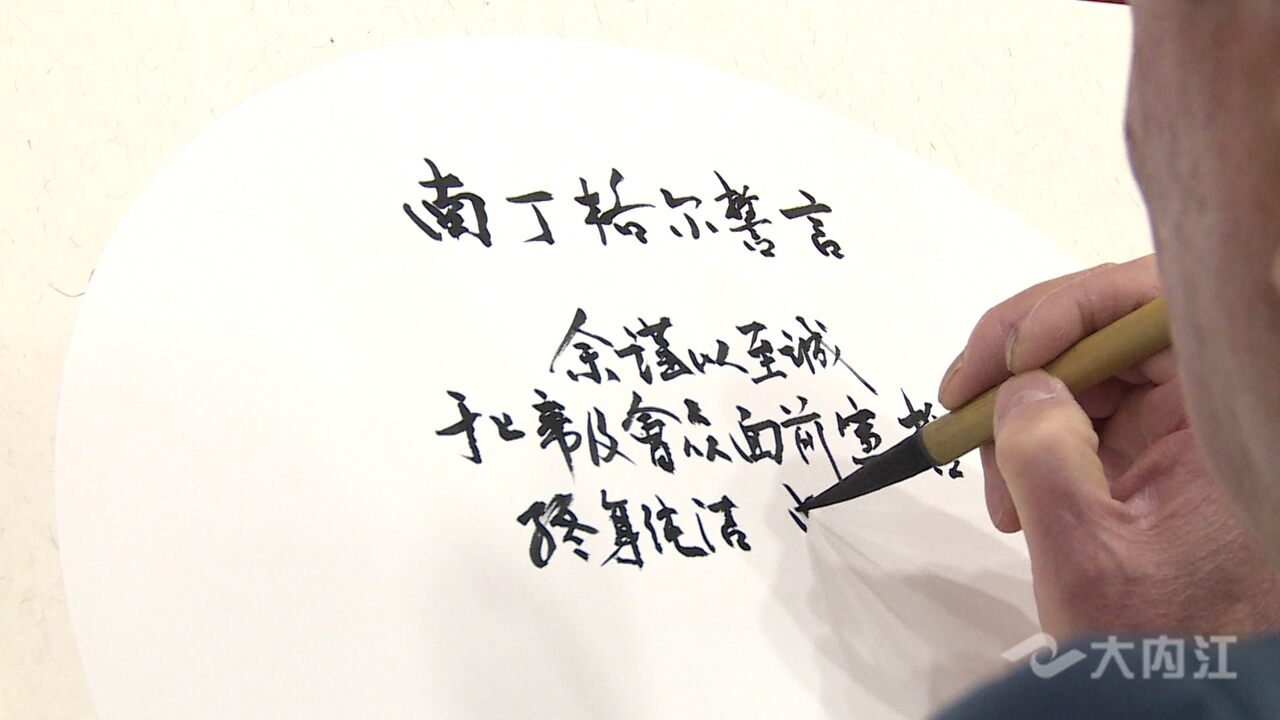 南丁格尔誓言
余谨以至诚
于上帝及會众面前宣誓
终身纯洁
大内江